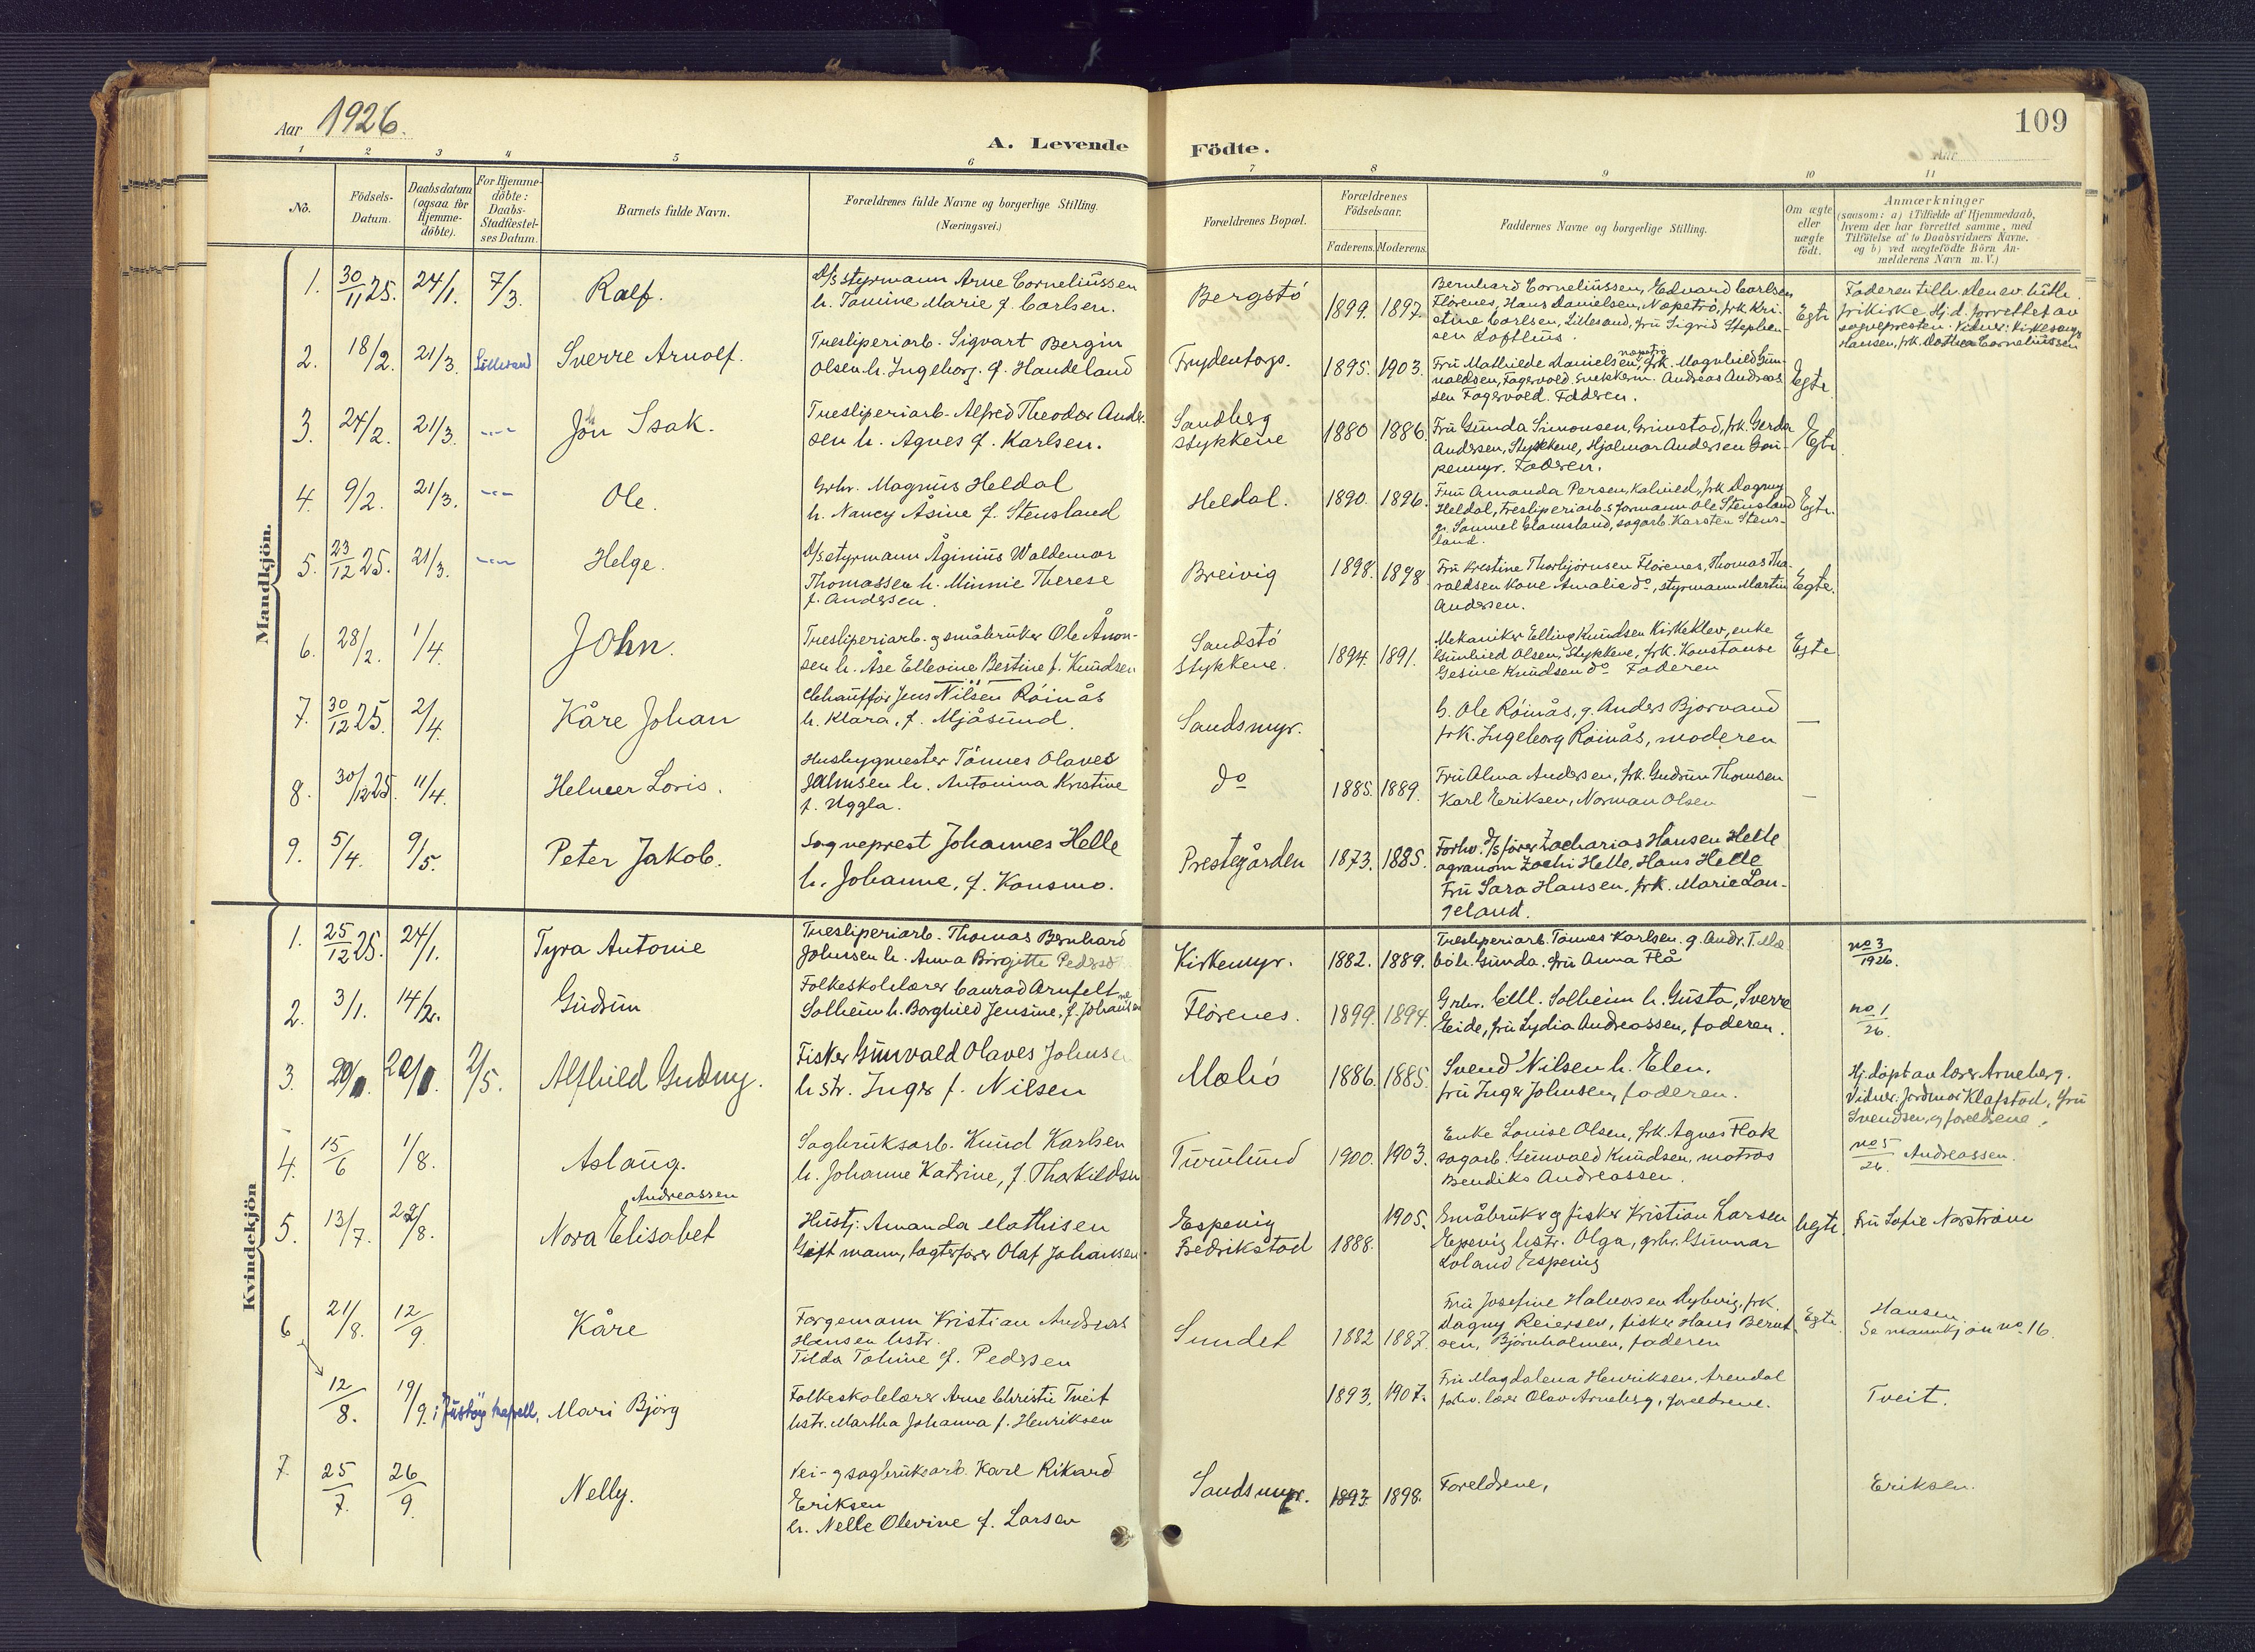 Aar 1926.
A. Levende Födte.
109
Aar
1 2 3 4 5 6 7 8 9 10 11
No.
Födsels-Datum.
Daabsdatum (ogsaa for Hjemme-döbte).
For Hjemme-döbte: Daabs-Stadfæstel-ses Datum.
Barnets fulde Navn.
Forældrenes fulde Navne og borgerlige Stilling.
(Næringsvei.)
Forældrenes Bopæl.
Forældrenes Födselsaar.
Faderens. Moderens.
Faddernes Navne og borgerlige Stilling.
Om ægte eller uægte födt.
Anmærkninger
(saasom: a) i Tilfælde af Hjemmedaab,
hvem der har forrettet samme, med
Tilföielse af to Daabsvidners Navne,
og b) ved uægtefödte Börn An-
melderens Navn m. V.)
Mandkjön.
1. 30/11 25. 24/1. 7/3. Ralf.
D/s styrmann Arne Corneliussen
h. Tomine Marie f. Carlsen.
Bergstö 1899. 1897.
Bernhard Corneliussen, Edvard Carlsen
Flörenes, Hans Danielsen, Nopetrö, frk. Kri-
stine Carlsen, Lillesand, fru Sigrid Stephen-
sen Lofthus.
Egte
Faderen tilh. den ev. luth.
frikirke Hj.d. forrettet av
sognepresten. Vidner: Kirkesang.
Hansen, frk. Dorthea Corneliussen
2. 18/2. 21/3. Lillesand Sverre Arnolf.
Tresliperiarb. Sigvart Bergin
Olsen h. Ingeborg f. Handeland
Frydentops. 1895. 1903.
Fru Mathilde Danielsen, nopetrö, frk. Magnhild Gun-
valdsen, Fagervold. Snekkerm. Andreas Andreas
sen Fagervold. Faderen.
Egte
3. 24/2. 21/3. -"- Jon Isak.
Tresliperiarb. Alfred Theodor Ander-
sen h. Agnes f. Karlsen.
Sandberg
stykkene 1880 1886.
Fru Gunda Simonsen, Grimstad, frk. Gerda
Andersen, Stykkene, Hjalmar Andersen Gau-
penmyr. Faderen.
Egte
4. 9/2. 21/3. -"- Ole.
Grbr. Magnus Heldal
h. Nancy Åsine f. Stensland
Heldal. 1890. 1896.
Fru Amanda Persen, Kalvild, frk Dagny
Heldal, Tresliperiarb.s formann Ole Stensland
g. Samuel Glamsland, sagarb. Karsten Stens-
land.
Egte.
5. 23/12 25. 21/3. -"- Helge.
D/s styrmann Åginius Waldemar
Thomassen h. Minnie Therese
f. Andersen.
Breivig 1898. 1898
Fru Kristine Thorbjörnsen Flörenes, Thomas Tha-
raldsen Kone Amalie do, styrmann Martin
Andersen.
Egte.
6. 28/2. 1/4. John.
Tresliperiarb. og småbruker Ole Ånon-
sen h. Åse Ellevine Bertine f. Knudsen
Sandstö
Stykkene. 1894. 1891.
Mekaniker Elling Knudsen Kirkeklev, enke
Gunhild Olsen, Stykkene, frk. Konstanse
Gesine Knudsen do Faderen
Egte
7. 30/12 25. 2/4. Kåre Johan
Chauffør Jens Nilsen Röinås
h. Klara, f. Mjåsund.
Sandsmyr.
G. Ole Röinås, g. Anders Bjorvand
frk. Ingeborg Röinås, moderen
—
8. 30/12 25. 11/4. Helmer Loris.
Husbygmester Tönnes Olaves
Johnsen h. Antonina Kristine
f. Uggla.
do 1885. 1889.
Fru Alma Andersen, frk. Gudrun Thomsen
Karl Eriksen, Norman Olsen
—
9. 5/4. 9/5. Peter Jakob.
Sogneprest Johannes Helle
h. Johanne, f. Konsmo.
Prestegården 1873. 1885.
Forhv. D/s förer Zacharias Hansen Helle
agronom Zachi Helle, Hans Helle
Fru Sara Hansen, frk. Marie Lan-
geland.
Kvindekjön
1. 25/12 25. 24/1. Tyra Antonie
Tresliperiarb. Thomas Bernhard
Johnsen h. Anna Birgitte
Kirkemyr. 1882. 1889.
Tresliperiarb. Tönnes Karlsen. g. Andr. T. Mæ
bö h. Gunda. fru Anna Flå
no 3/1926.
2. 3/1. 14/2. Gudrun
Folkeskolelærer Conrad Arnfelt
Solheim h. Borghild Jensine, f. Johansen
Flörenes. 1899. 1894.
Grbr. Ell. Solheim h. Gusta, Sverre
Eide, fru Lydia Andreassen, faderen.
no 1/26.
3. 2/5. Alfhild Gudny.
Fisker Gunvald Olaves Johnsen
hstr. Inger f. Nilsen
Mæbö 1886. 1885.
Svend Nilsen h. Elen.
fru Inger Johnsen, faderen.
Hj.döpt av lærer Arneberg.
Vidner: Jordmor Klafstad, fru
Svendsen, og foreldrene.
4. 15/6 1/8. Aslaug.
Sagbruksarb. Knud Karlsen
h. Johanne Katrine, f. Thorkildsen
1900. 1903.
Enke Louise Olsen, frk. Agnes Flak
sagarb. Gunvald Knudsen, matros
Bendiks Andreassen.
no 5/26 Andreassen.
5. 13/7. 22/8. Andreassen
Nora Elisabet
Hustj. Amanda Mathisen
Gift mann, lagterförer Olaf Johansen.
Espevig
Fredrikstad 1888. 1905.
Småbruker g fisker Kristian Larsen
Espevig hstr. Olga, grbr. Gunnar
Loland Espevig
Uegte.
Fru Sofie Norström
6 21/8. 12/9. Kåre
Forgemann Kristian Andreas
Hansen hstr.
Tilda Tomine f. Pedersen
Sundet 1882 1887.
Fru Josefine Halvorsen Dybvig, frk.
Dagny Reiersen, fisker Hans Bernt-
sen, Björnholmen, faderen
Egte.
Hansen
Se mannkjön no. 16.
12/8. 19/9. i Justöy kapell, Mari Björg
Folkeskolelærer Arne Christie Tveit
hstr. Martha Johanna f. Henriksen
1893. 1907.
Fru Magdalena Henriksen, Arendal
forhv. lærer Olav Arneberg, foreldrene.
Tveit.
7. 25/7. 26/9. Nelly.
Vei- og sagbruksarb. Karl Rikard
Eriksen
h. Nelle Olevine f. Larsen
Sandsmyr. 1893. 1898.
Foreldrene,
Eriksen.